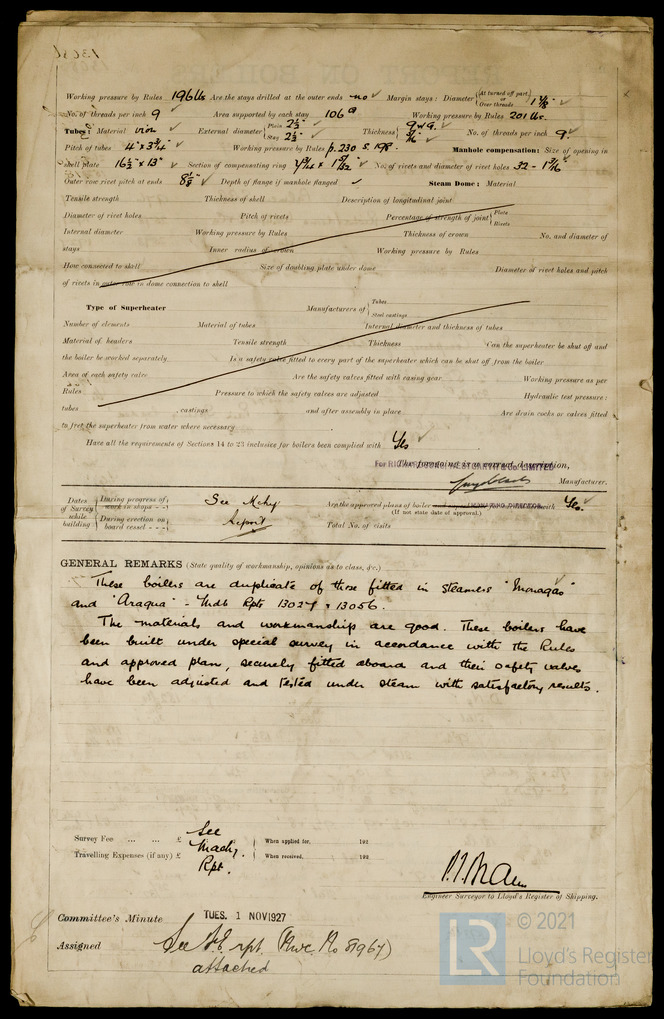 Working pressure by Rules 196 lbs Are the stays drilled at the outer ends no Margin stays: Diameter {At turned off part or Over threads 1 7/8"
No. of threads per inch 9 Area supported by each stay 106 Working pressure by Rules 201 lbs.
Tubes: Material iron External diameter {Plain 2 1/2" Stay 2 1/2" Thickness { No. of threads per inch 9
Pitch of tubes 4" x 3 3/4" Working pressure by Rules p. 230 S. 198. Manhole compensation: Size of opening in
shell plate 16 1/2" x 13" Section of compensating ring No. of rivets and diameter of rivet holes 32 - 1 3/16"
Outer row rivet pitch at ends 8 1/8" Depth of flange if manhole flanged Steam Dome: Material
Tensile strength Thickness of shell Description of longitudinal joint
Diameter of rivet holes Pitch of rivets Percentage of strength of joint {Plate Rivets
Internal diameter Working pressure by Rules Thickness of crown No. and diameter of
stays Inner radius of crown Working pressure by Rules
How connected to shell Size of doubling plate under dome Diameter of rivet holes and pitch
of rivets in outer row in dome connection to shell
Type of Superheater Manufacturers of {Tubes Steel castings
Number of elements Material of tubes Internal diameter and thickness of tubes
Material of headers Tensile strength Thickness Can the superheater be shut off and
the boiler be worked separately Is a safety valve fitted to every part of the superheater which can be shut off from the boiler
Area of each safety valve Are the safety valves fitted with easing gear Working pressure as per
Rules Pressure to which the safety valves are adjusted Hydraulic test pressure:
tubes , castings and after assembly in place Are drain cocks or valves fitted
to free the superheater from water where necessary
Have all the requirements of Sections 14 to 23 inclusive for boilers been complied with Yes
The foregoing is a correct description,
Manufacturer.
Dates of Survey while building {During progress of work in shops - - During erection on board vessel - - - See Mchy Report
Are the approved plans of boiler forwarded herewith Yes.
(If not state date of approval.)
Total No. of visits
GENERAL REMARKS (State quality of workmanship, opinions as to class, &c.)
These boilers are duplicate of those fitted in steamers "Monagas"
and "Aragua" - Mdb Rpts 13027 & 13056.
The materials and workmanship are good. These boilers have
been built under special survey in accordance with the Rules
and approved plan, securely fitted aboard and their safety valves
have been adjusted and tested under steam with satisfactory results.
Survey Fee ... ... £ See When applied for, 192
Travelling Expenses (if any) £ Machy. Rpt. When received, 192
Engineer Surveyor to Lloyd's Register of Shipping.
Committee's Minute TUES. 1 NOV 1927
Assigned See F.E. rpt. (Nwc. No 81967)
attached
LR © 2021
Lloyd's Register
Foundation